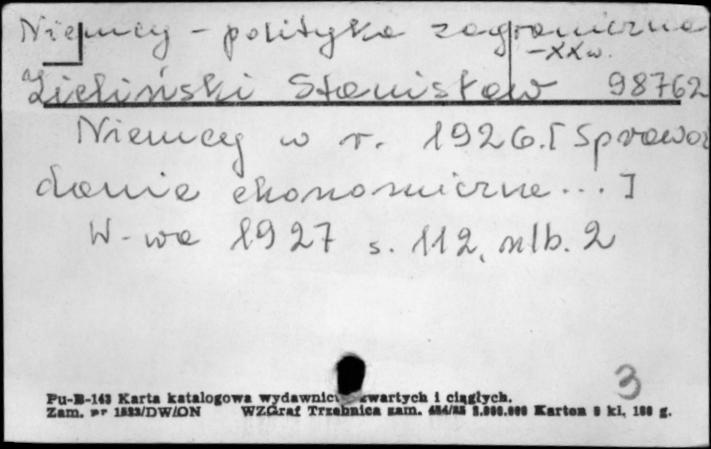 Niemcy - polityka zagraniczna
- XX w.
Zieliński Stanisław 98762
Niemcy w r. 1926. [Sprawoz
danie ekonomiczne...]
W-wa 1927 s. 112, nlb. 2
3
Pu-B-143 Karta katalogowa wydawnictw zwartych i ciągłych.
Zam. nr 1523/DW/ON WZGraf Trzebnica zam. Karton kl. g.